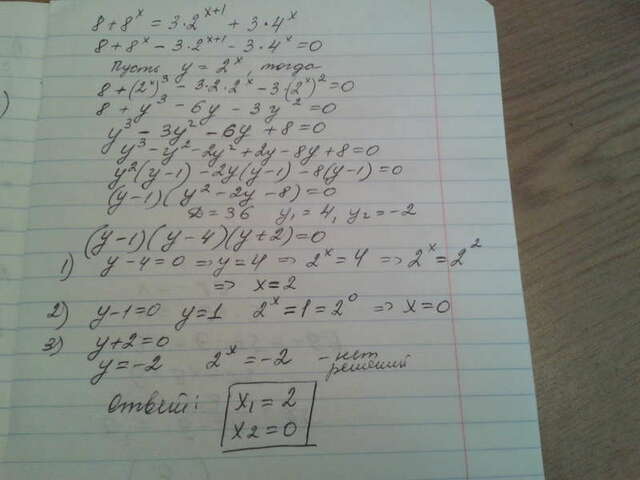 8 + 8^x = 3·2^{x+1} + 3·4^x
8 + 8^x - 3·2^{x+1} - 3·4^x = 0
Пусть y = 2^x, тогда
8 + (2^x)^3 - 3·2·2^x - 3·(2^x)^2 = 0
8 + y^3 - 6y - 3y^2 = 0
y^3 - 3y^2 - 6y + 8 = 0
y^3 - y^2 - 2y^2 + 2y - 8y + 8 = 0
y^2(y-1) - 2y(y-1) - 8(y-1) = 0
(y-1)(y^2 - 2y - 8) = 0
D = 36 y_1 = 4, y_2 = -2
(y-1)(y-4)(y+2) = 0
1) y-4=0 ⇒ y=4 ⇒ 2^x = 4 ⇒ 2^x = 2^2
⇒ x = 2
2) y-1=0 y=1 2^x = 1 = 2^0 ⇒ x=0
3) y+2=0
y=-2 2^x = -2 - нет решений
Ответ: x_1 = 2
x_2 = 0